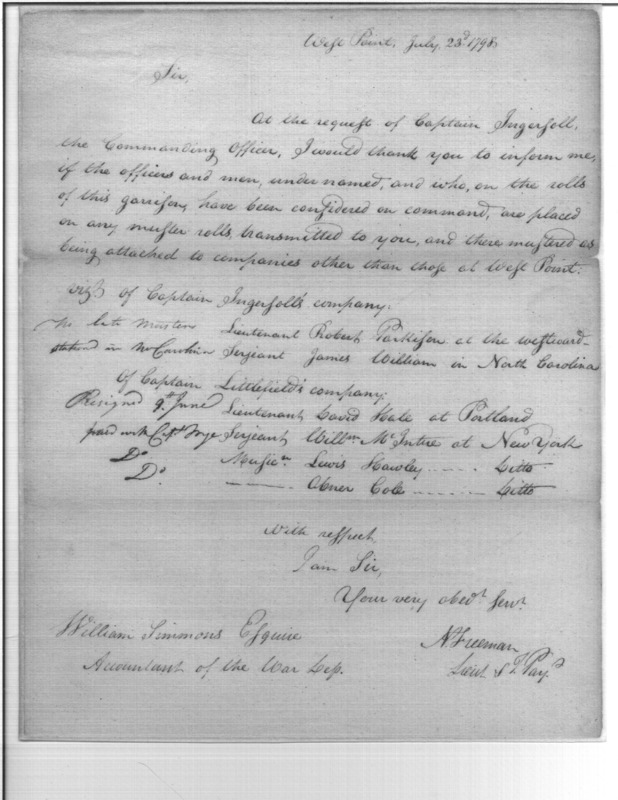 West Point, July, 23d. 1798
Sir,
At the request of Captain Ingersoll,
the Commanding Officer, I would thank you to inform me,
if the officers and men, under named, and who, on the rolls
of this garrison, have been considered on command, are placed
on any muster rolls, transmitted to you, and there mustered as
being attached to companies other than those at West Point:
vizt of Captain Ingersoll's company:
No late Musters Lieutenant Robert Parkison at the westward
stationed in No Carolina Serjeant James William in North Carolina
Of Captain Littlefield's company:
Resigned 9th June Lieutenant David Hale at Portland
paid with Capt. Serjeant Willm. McIntire at New York
Do Musicn Lewis Hawley ---- Ditto
Do ---- Abner Cole ------ Ditto
With respect
I am Sir,
Your very obedt Servt.
William Simmons Esquire
N Freeman
Accountant of the War Dep.
Lieut & Payr